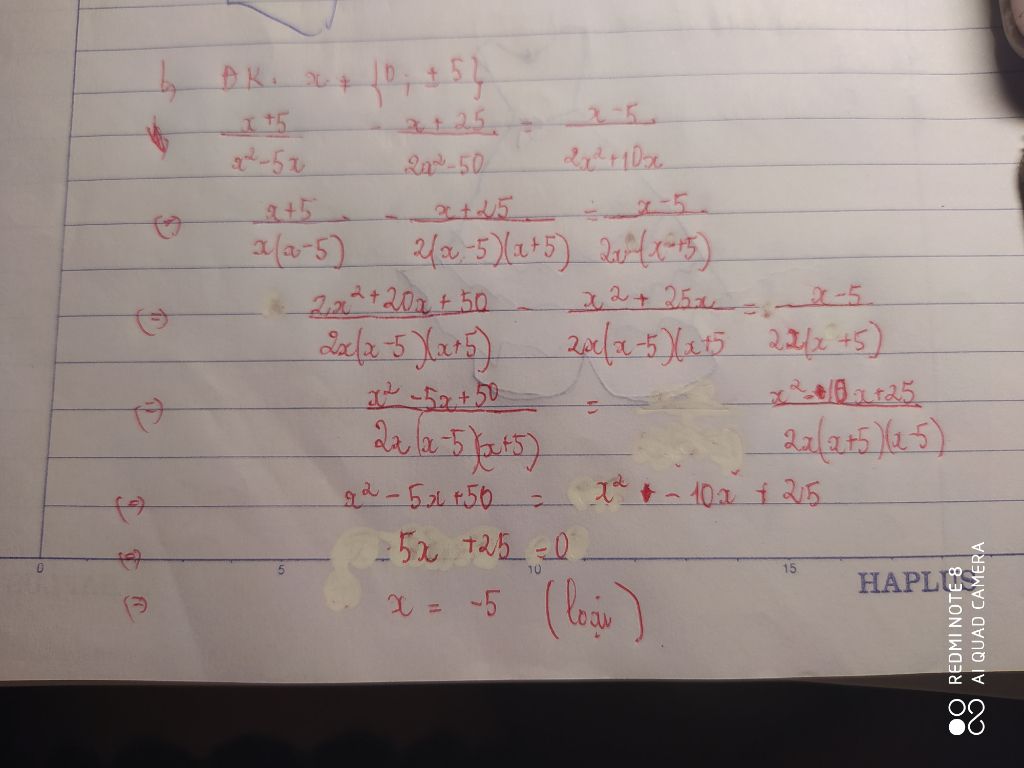 b, ĐK: x ≠ {0; ±5}
x+5 / x²-5x - x+25 / 2x²-50 = x-5 / 2x²+10x
(=) x+5 / x(x-5) - x+25 / 2(x-5)(x+5) = x-5 / 2x(x+5)
(=) 2x²+20x+50 / 2x(x-5)(x+5) - x²+25x / 2x(x-5)(x+5 = x-5 / 2x(x+5)
(=) x²-5x+50 / 2x(x-5)(x+5) = x²-10x+25 / 2x(x+5)(x-5)
(=) x²-5x+50 = x²-10x+25
(=) 5x +25 =0
(=) x = -5 (loại)
0 5 10 15
HAPLUS
REDMI NOTE 8
AI QUAD CAMERA